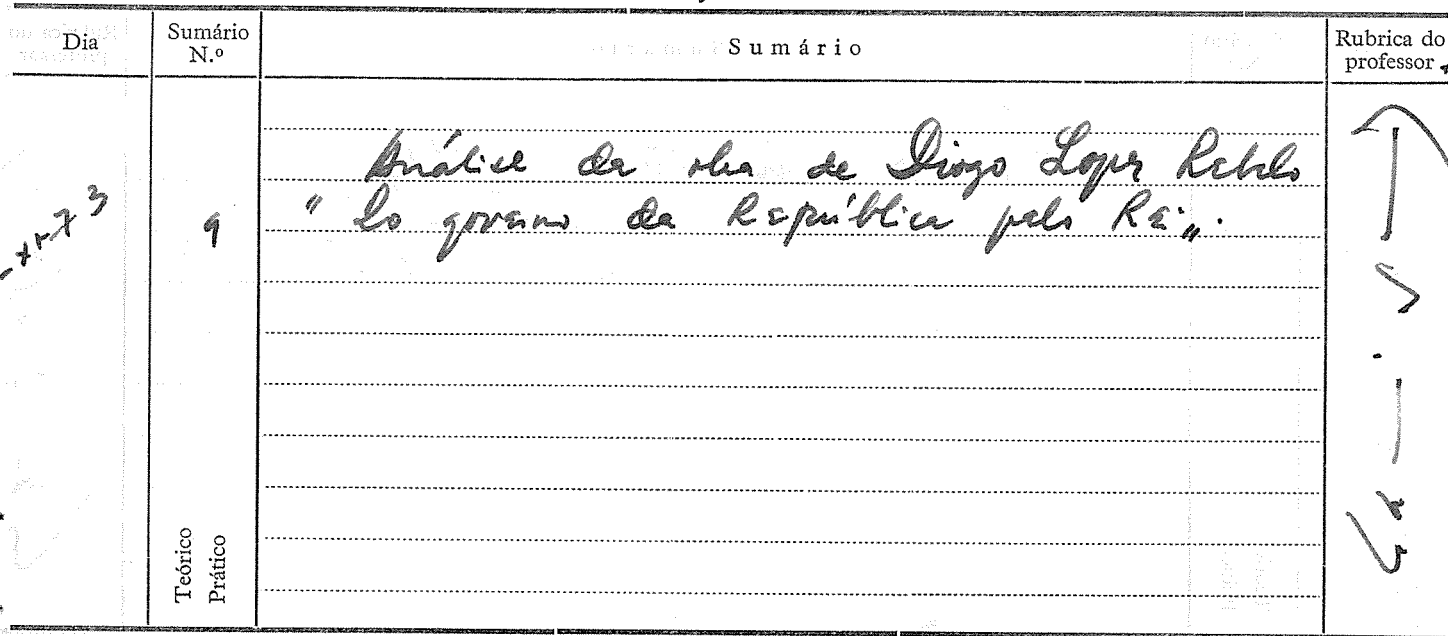 Dia
Sumário N.º
Sumário
Rubrica do professor
Análise da obra de Diogo Lopes Rebelo
9
"Do governo da República pelo Rei".
Teórico
Prático